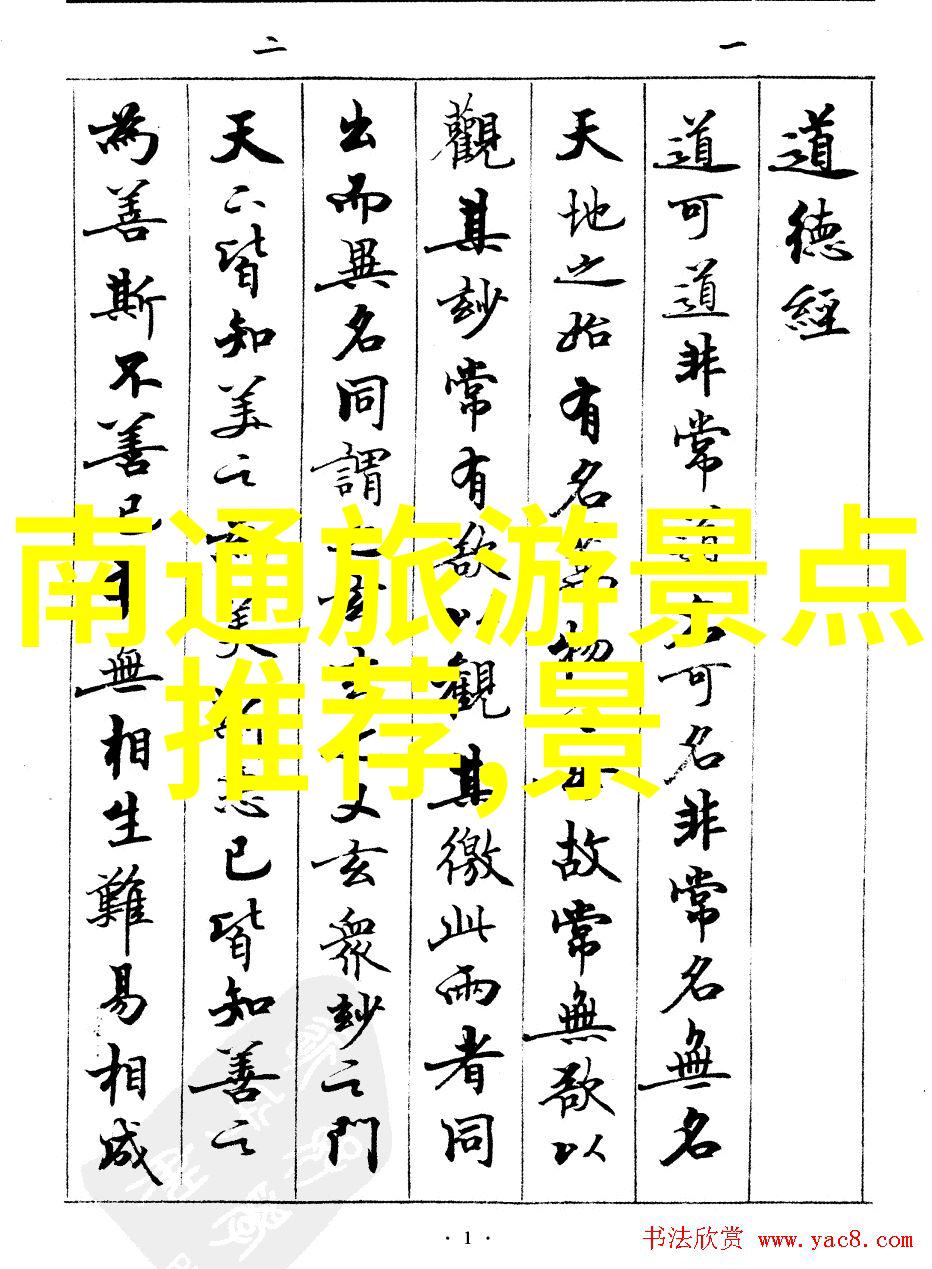 二 一
道德經
道可道非常道名可名非常名無名
天地之始有名萬物之母故常無欲以
觀其玅常有欲以觀其徼此兩者同
出而異名同謂之玄玄之又玄衆玅之門
天下皆知美之為美斯惡已皆知善之
為善斯不善已有無相生難易相成
南通旅游景点
推荐,景
· 1 ·
书法欣赏 www.yac8.com